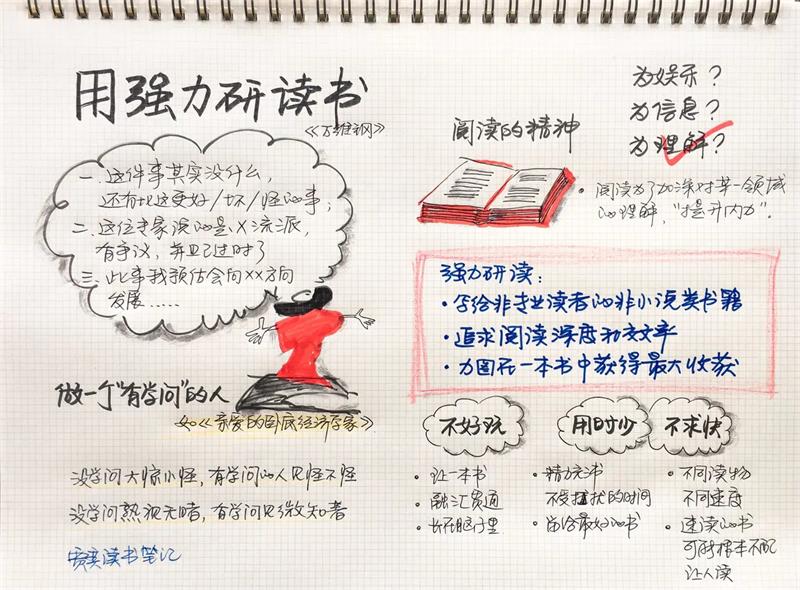 用强力研读书
《万维钢》
一. 这件事其实没什么,
还有比这更好/坏/怪的事;
二. 这位专家说的是X流派,
有争议,并且已过时了
三. 此事我预估会向XX方向
发展......
做一个"有学问"的人
如《亲爱的卧底经济学家》
没学问大惊小怪,有学问的人见怪不怪
没学问熟视无睹,有学问见微知著
读书笔记
阅读的精神
为娱乐?
为信息?
为理解?
• 阅读为了加深对某一领域
的理解,"提升内力".
强力研读:
• 写给非专业读者的非小说类书籍
• 追求阅读深度和效率
• 力图在一本书中获得最大收获
不好玩
• 让一本书
• 融汇贯通
• 长在脑子里
用时少
• 精力充沛
不受打扰的时间
• 留给最好的书
不求快
• 不同读物
不同速度
• 速读的书
可能根本不配
让人读